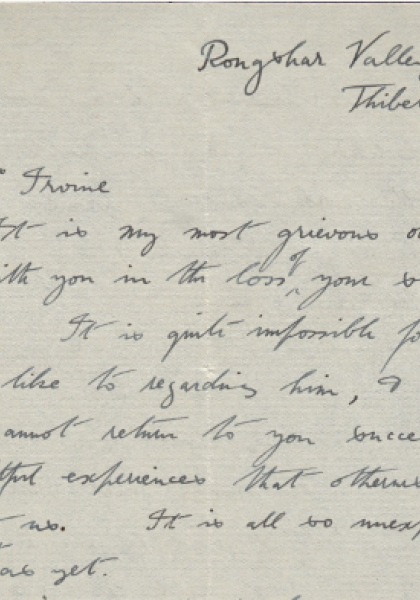 Rongshar Valley
Thibet
Irvine
It is my most grievous
with you in the loss of your
It is quite impossible fo
like to regarding him, I
annot return to you succe
tful experiences that otherwis
us. It is all so unexp
as yet.